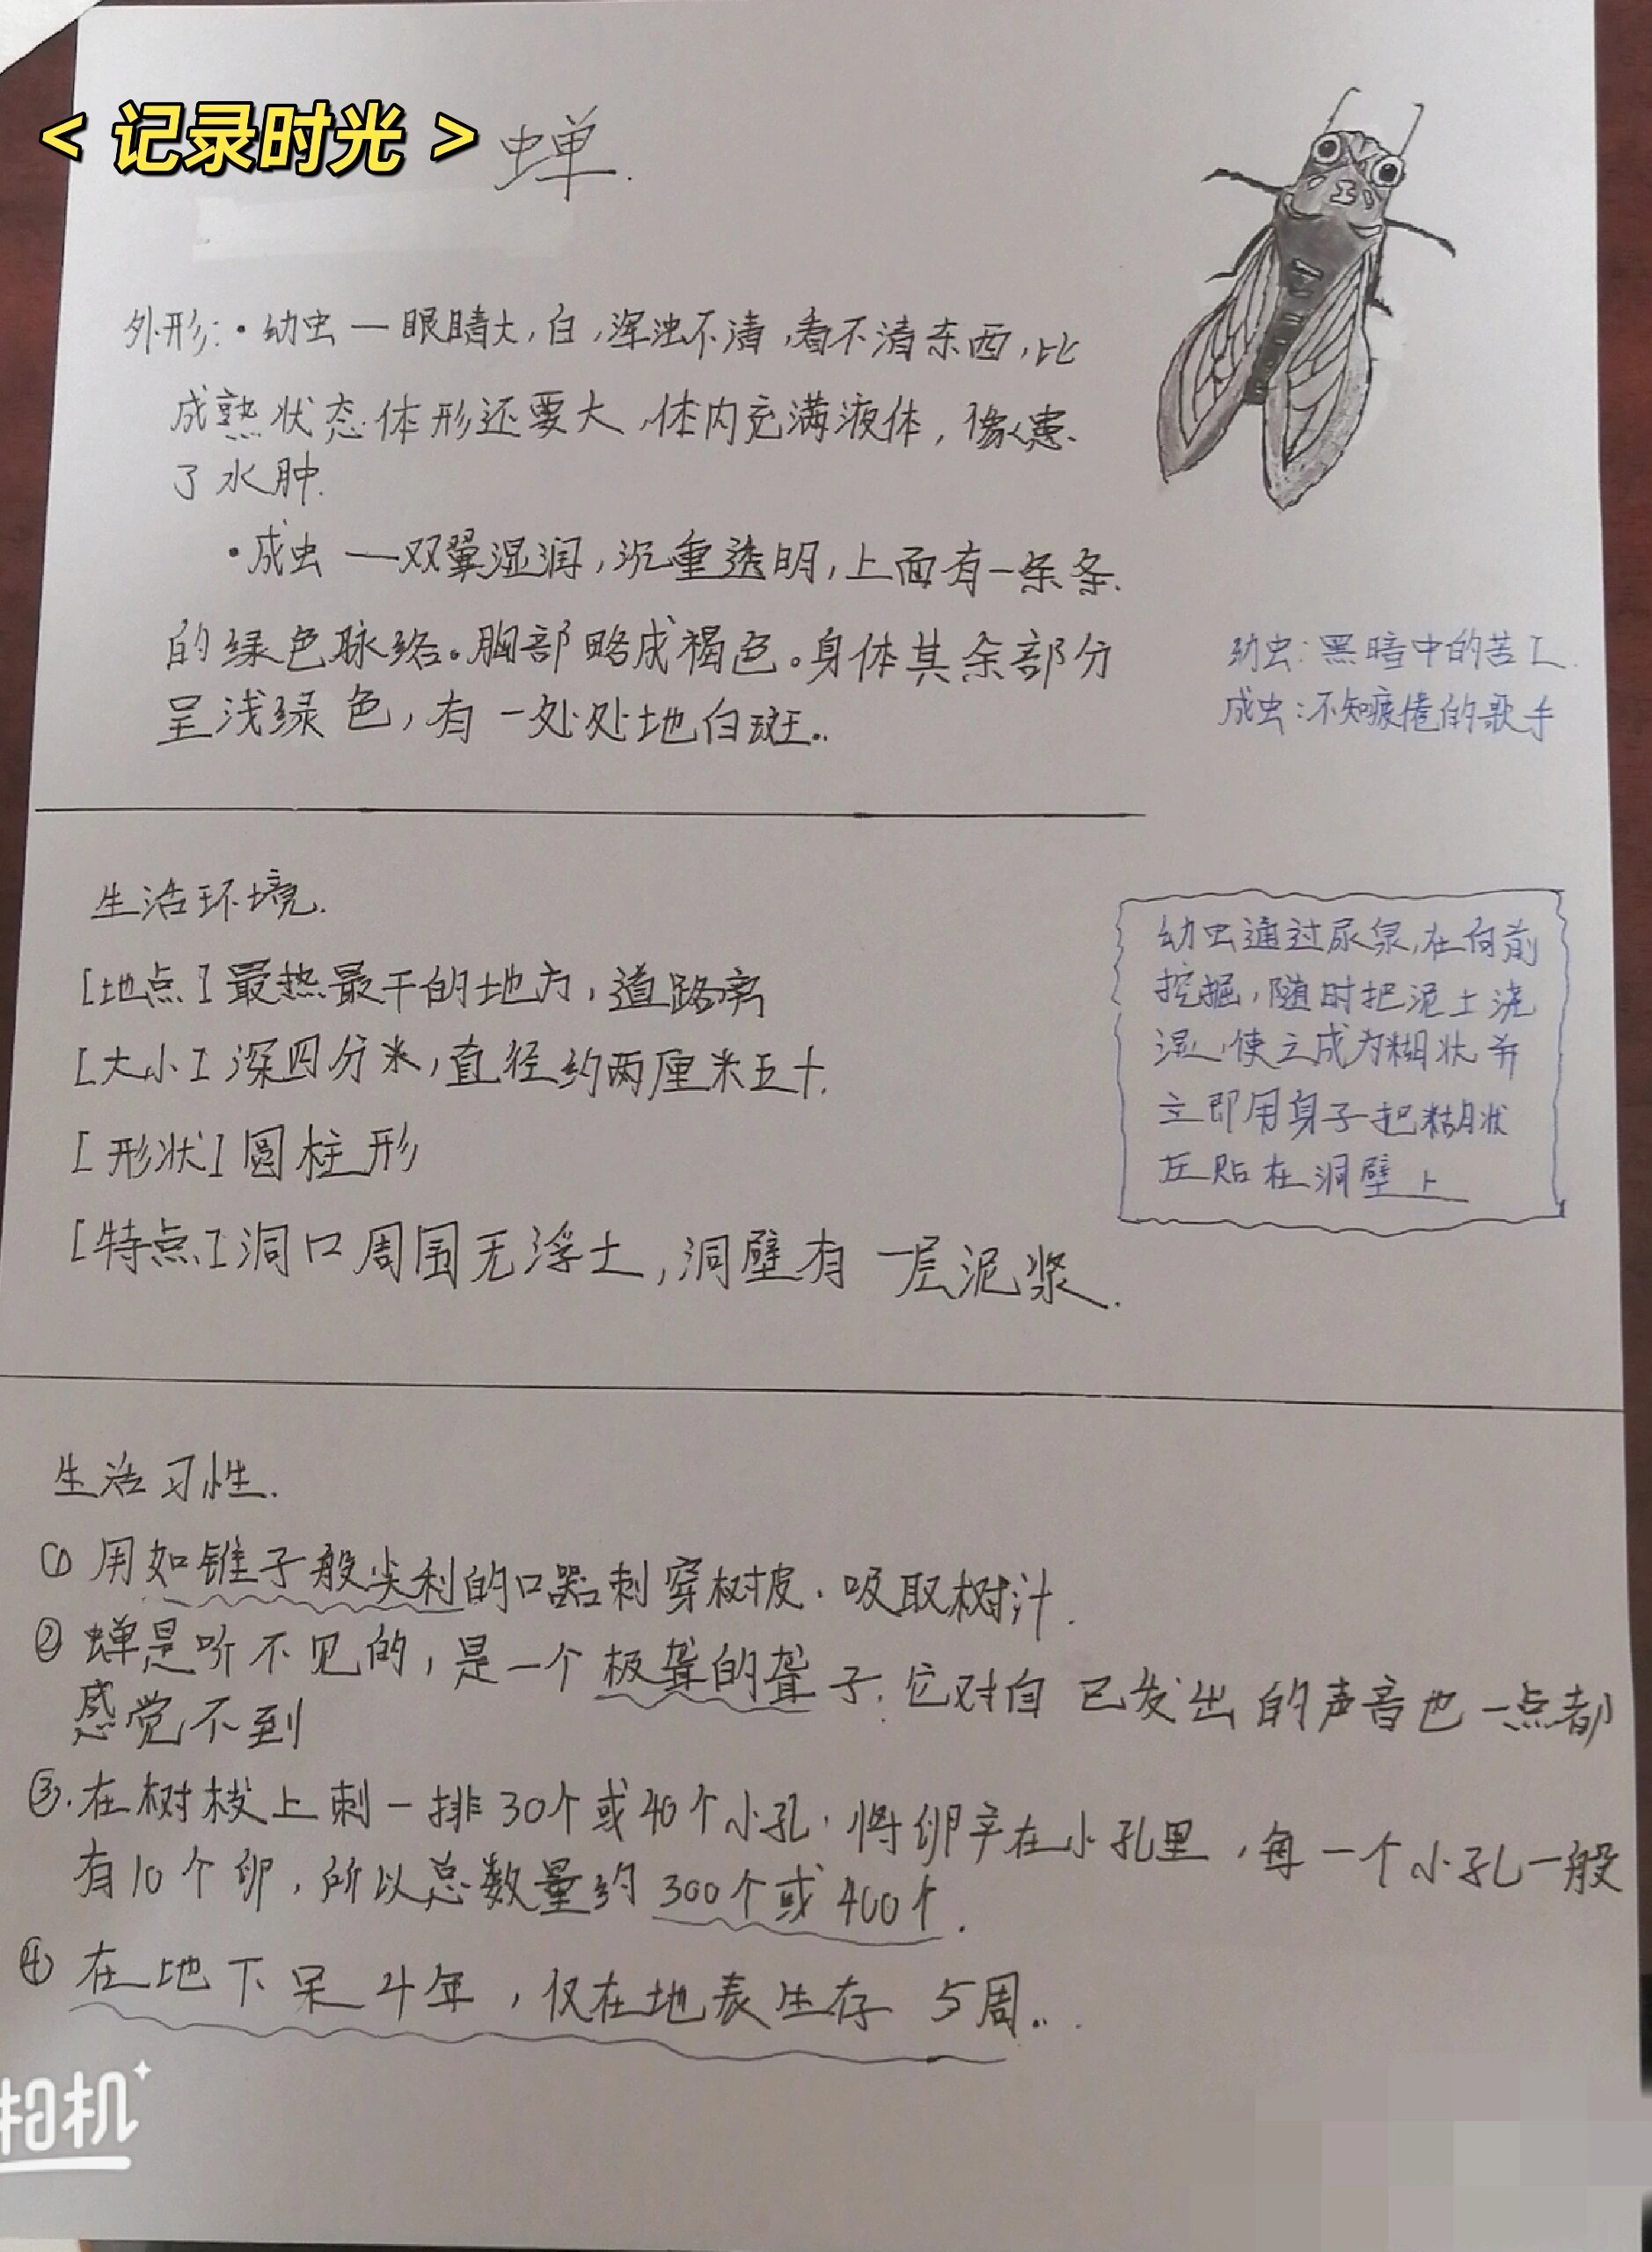 < 记录时光 >
蝉.
外形:·幼虫—眼睛大,白,浑浊不清,看不清东西,比
成熟状态体形还要大,体内充满液体,像患
了水肿.
·成虫—双翼湿润,沉重透明,上面有一条条
的绿色脉络。胸部略成褐色。身体其余部分
呈浅绿色,有一处处地白斑..
幼虫:黑暗中的苦工.
成虫:不知疲倦的歌手
生活环境.
[地点]最热最干的地方,道路旁
[大小]深四分米,直径约两厘米五十.
[形状]圆柱形
[特点]洞口周围无浮土,洞壁有一层泥浆.
幼虫通过尿泉,在向前
挖掘,随时把泥土浇
湿,使之成为糊状并
立即用身子把糊状
压贴在洞壁上
生活习性.
① 用如锥子般尖利的口器刺穿树皮.吸取树汁.
② 蝉是听不见的,是一个极聋的聋子.它对自己发出的声音也一点都
感觉不到
③.在树枝上刺一排30个或40个小孔.将卵产在小孔里,每一个小孔一般
有10个卵,所以总数量约300个或400个.
④ 在地下呆4年,仅在地表生存5周..
相机